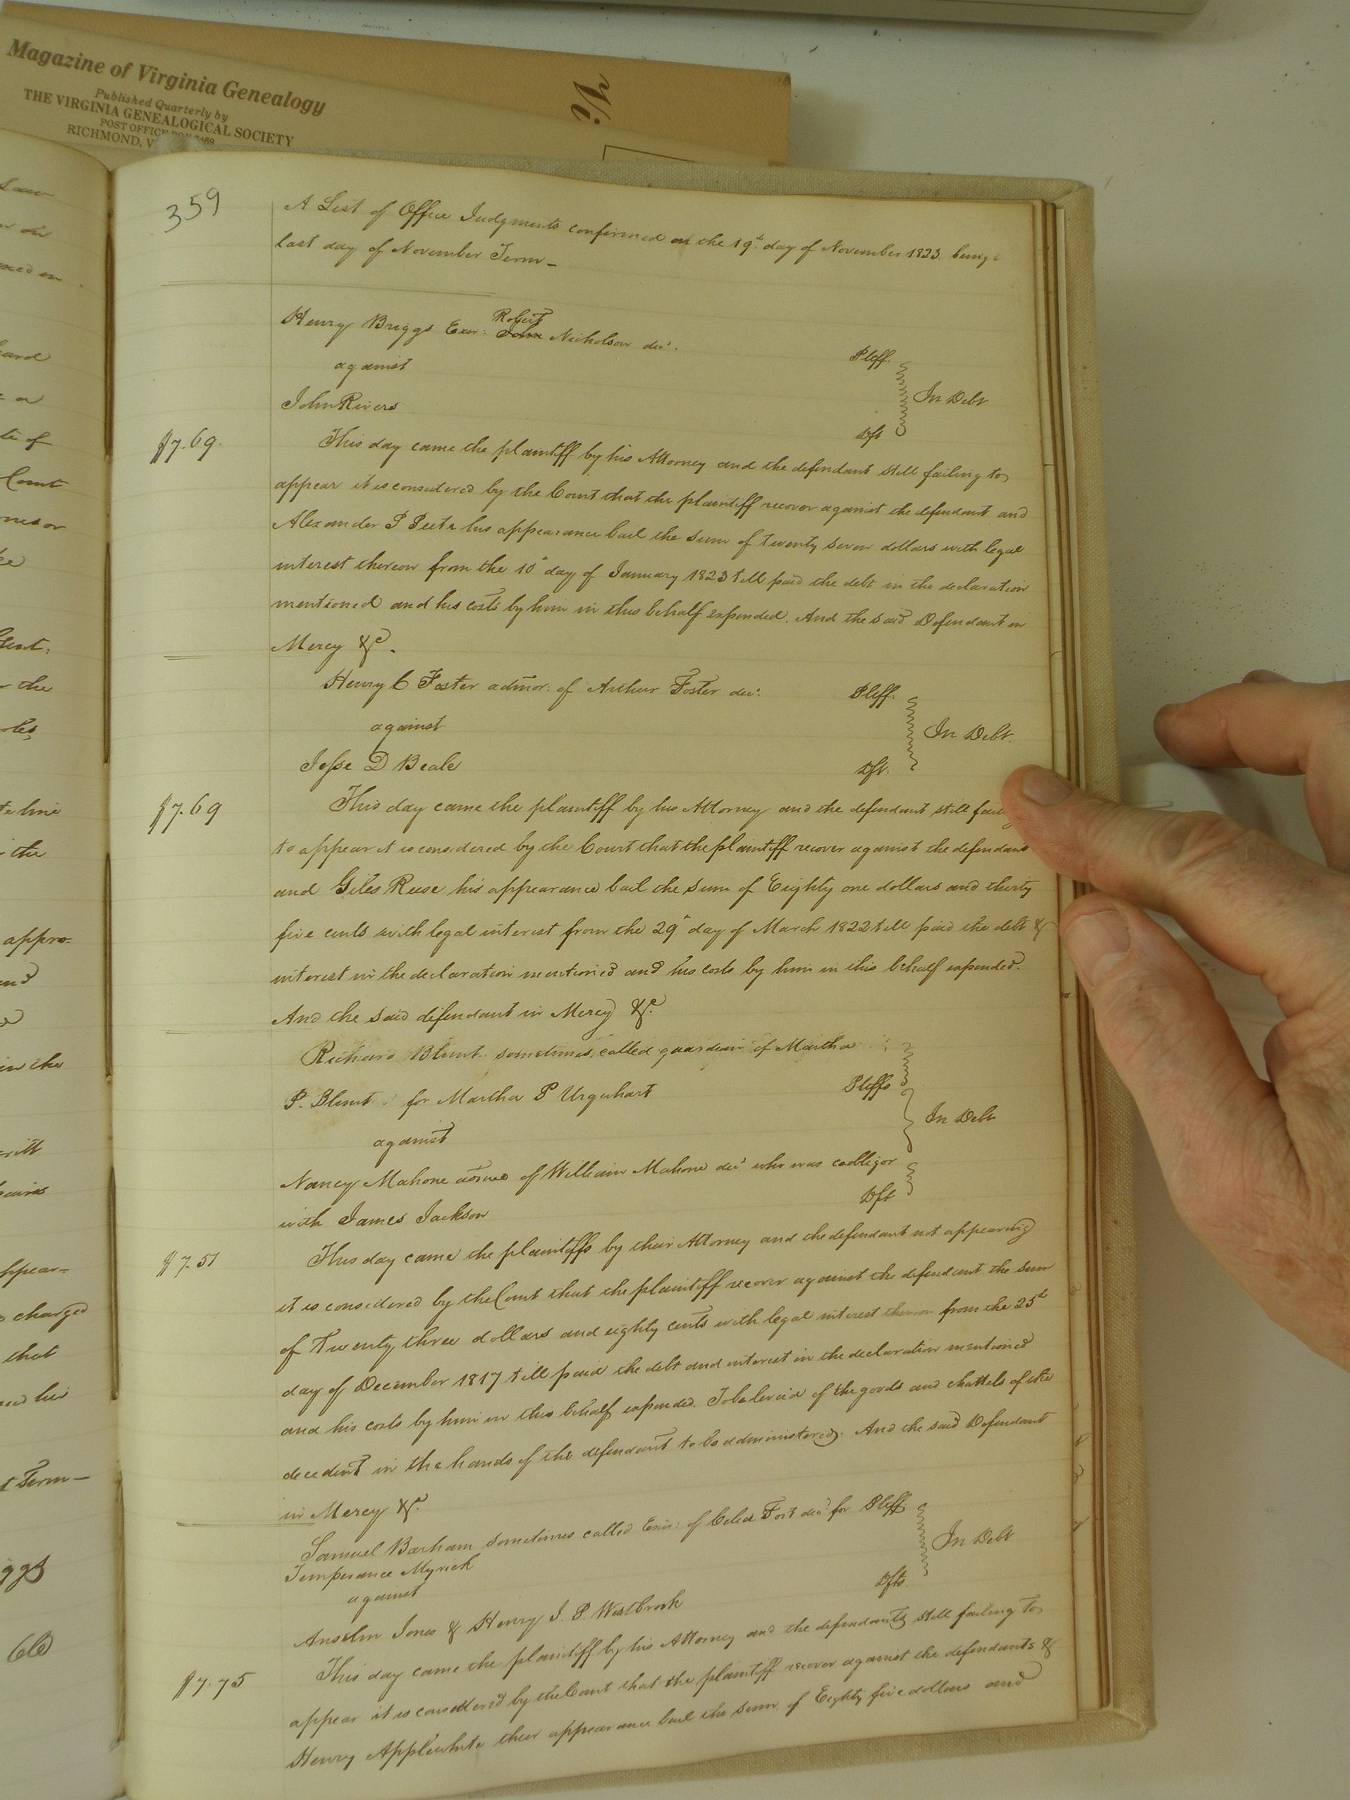 Magazine of Virginia Genealogy
Published Quarterly by
THE VIRGINIA GENEALOGICAL SOCIETY
POST OFFICE
RICHMOND, V
Vi
359
A List of Office Judgments confirmed on the 19th day of November 1823. being
last day of November Term—
Robert
Henry Briggs Exor: John Nicholson decd.
Pleff.
against
In Debt
John Rivers
Dft
$7.69.
This day came the plaintiff by his Attorney and the defendant still failing to
appear it is considered by the Court that the plaintiff recover against the defendant and
Alexander P Peete his appearance bail the sum of twenty seven dollars with legal
interest thereon from the 10th day of January 1823 till paid the debt in the declaration
mentioned and his costs by him in this behalf expended. And the said Defendant in
Mercy &c.
Henry C Foster admor. of Arthur Foster decd.
Pleff.
against
In Debt.
Jesse D Beale
Dft.
$7.69
This day came the plaintiff by his Attorney and the defendant still faili
to appear it is considered by the Court that the plaintiff recover against the defendant
and Giles Reese his appearance bail the sum of Eighty one dollars and thirty
five cents with legal interest from the 29th day of March 1822 till paid the debt &
interest in the declaration mentioned and his costs by him in this behalf expended.
And the said defendant in Mercy &c.
Richard Blunt sometimes called guardian of Martha
P. Blunt for Martha P Urquhart
Pleffs
In Debt
against
Nancy Mahone admx of William Mahone decd who was coobligor
with James Jackson
Dft
$7.51
This day came the plaintiffs by their Attorney and the defendant not appearing
it is considered by the Court that the plaintiff recover against the defendant the sum
of Twenty three dollars and eighty cents with legal interest thereon from the 25th
day of December 1817 till paid the debt and interest in the declaration mentioned
and his costs by him in this behalf expended. To be levied of the goods and chattels of the
decedent in the hands of the defendant to be administered. And the said Defendant
in Mercy &c.
Samuel Barham sometimes called Exor: of Celia Fort decd for Pleff
Temperance Myrick
In Debt
against
Dfts
Anselm Jones & Henry J. P. Westbrook
$7.75
This day came the plaintiff by his Attorney and the defendants still failing to
appear it is considered by the Court that the plaintiff recover against the defendants &
Henry Applewhite their appearance bail the sum of Eighty five dollars and